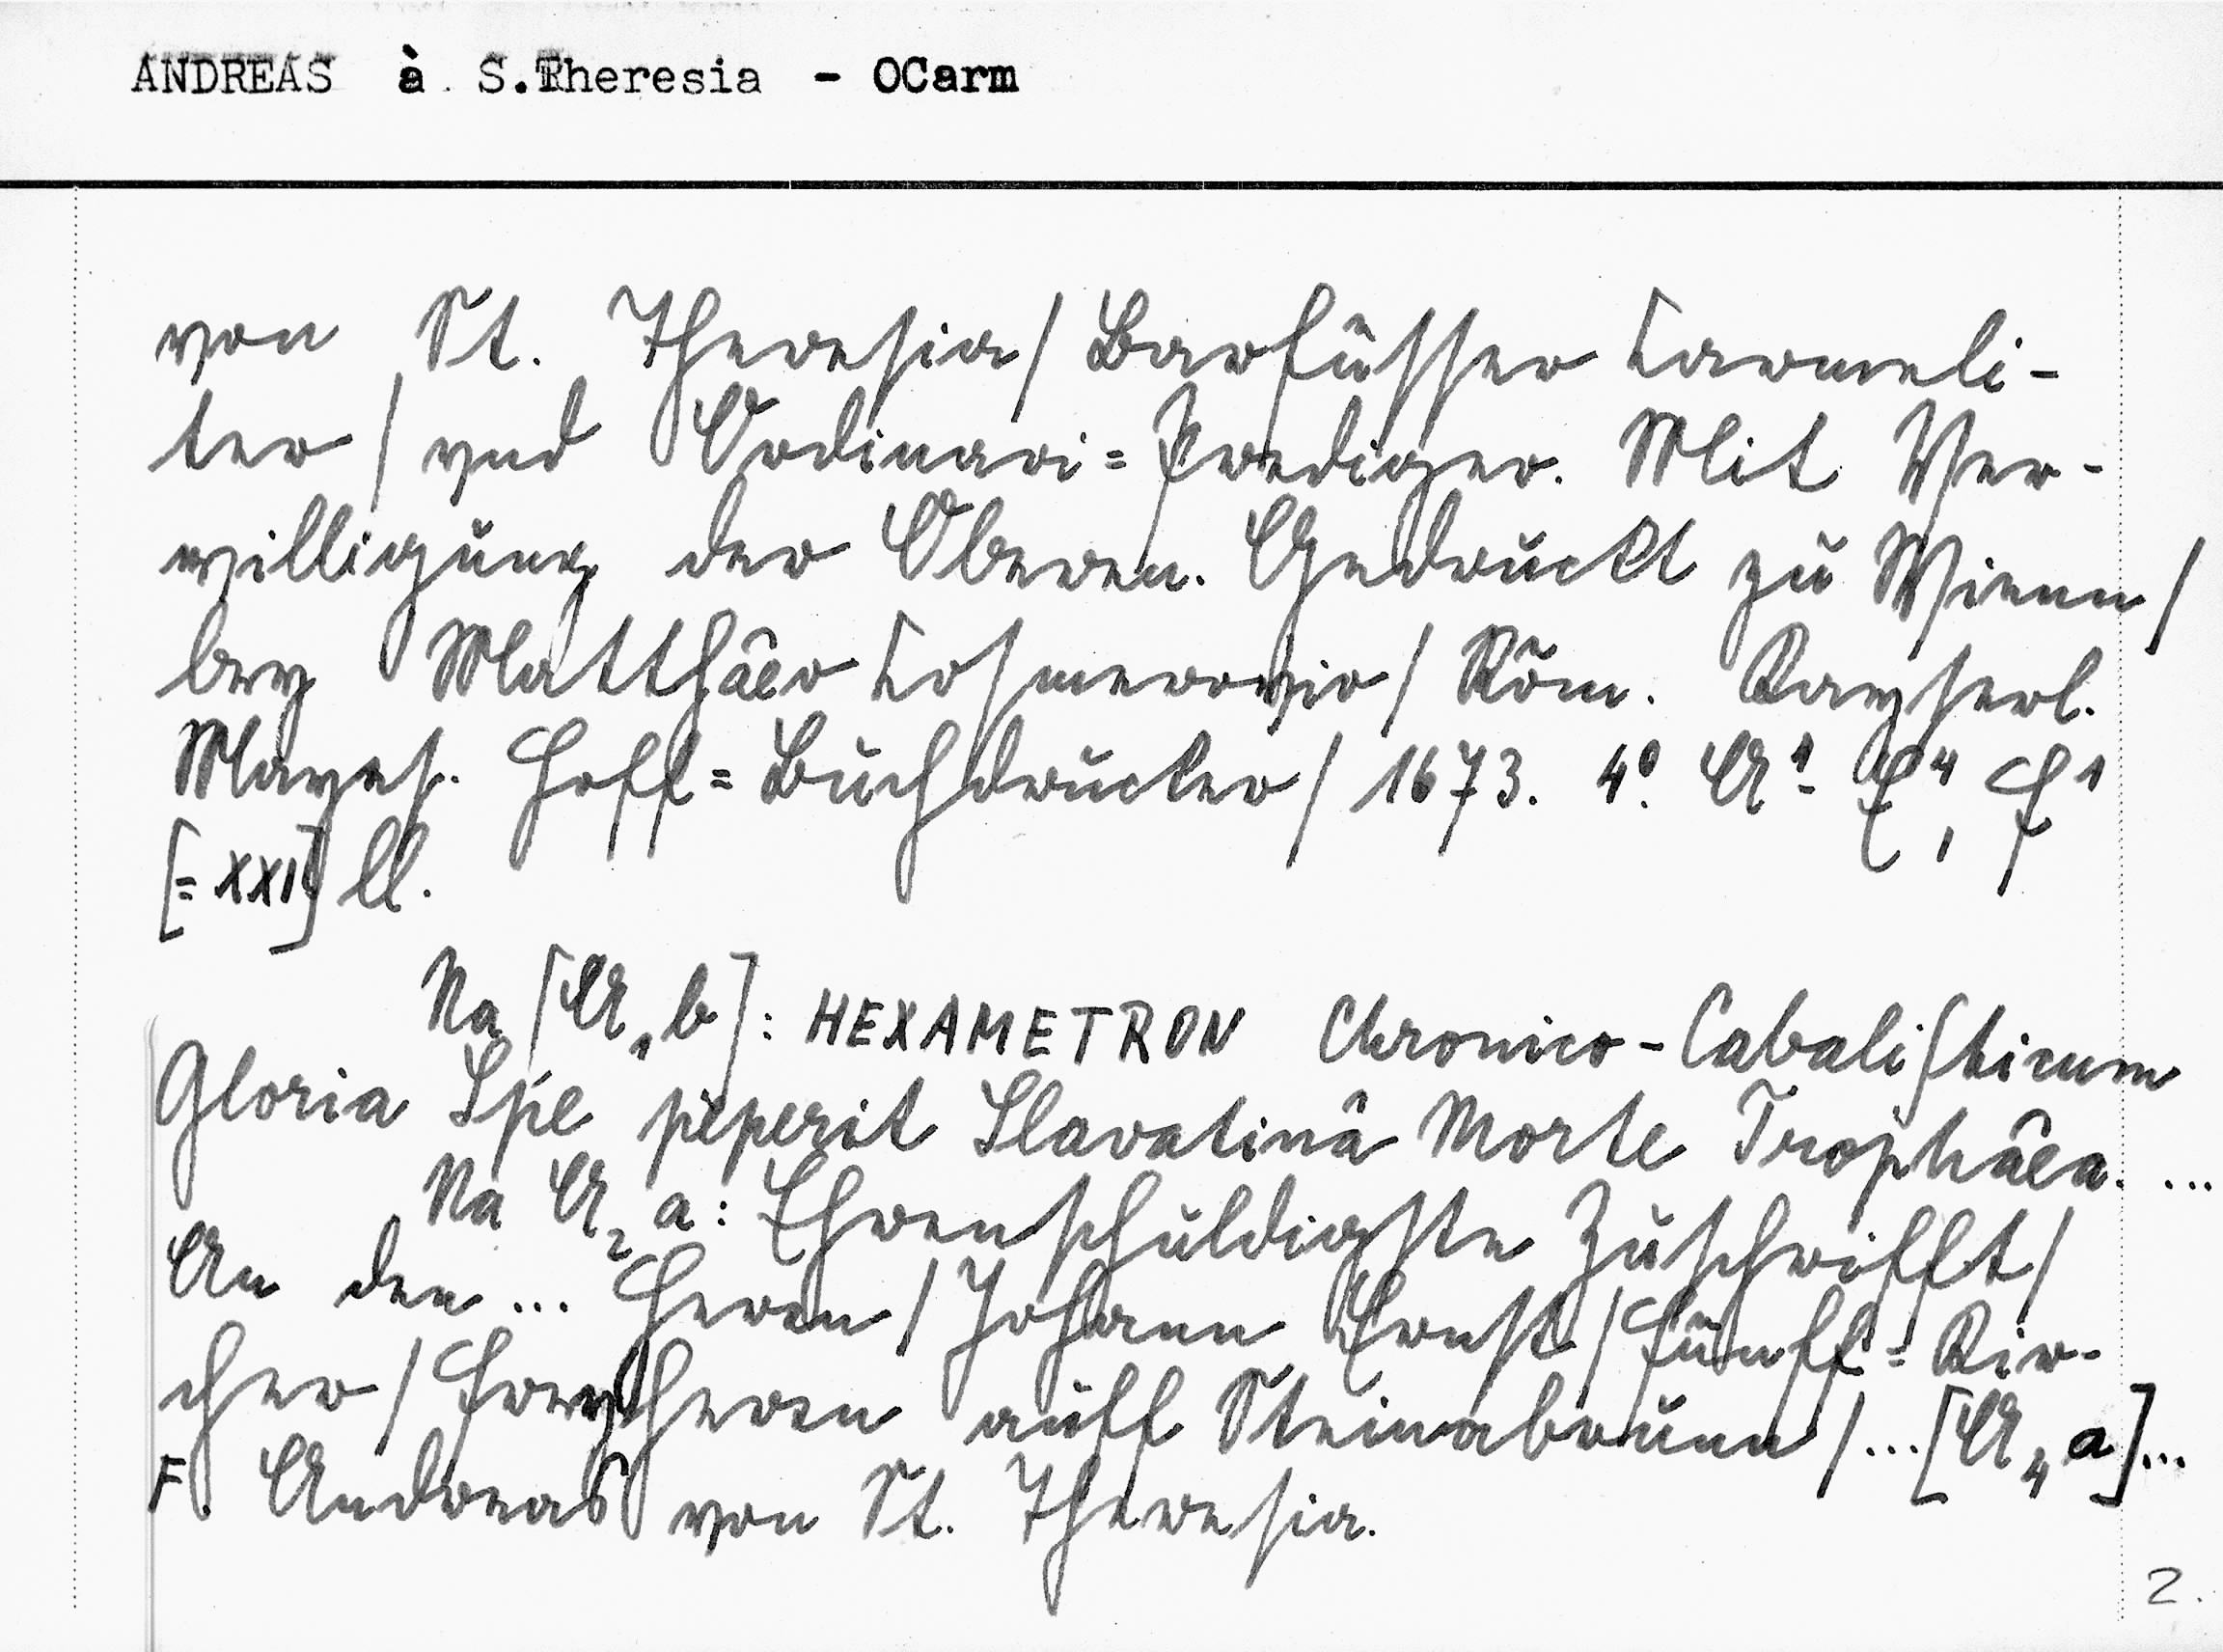 ANDREAS à S.Theresia - OCarm
von St. Theresia/ Barfüsser Carmeli-
ter / vnd Ordinari=Prediger. Mit Ver-
willigung der Oberen. Gedruckt zu Wienn/
bey Matthæo Cosmerovio/ Röm. Kayserl.
Mayes. Hoff=Buchdrucker/ 1673. 4º. A¹- E⁴, F¹
[=XXI] ll.
Na [A₁b]: HEXAMETRON Chronico-Cabaliſticum
Gloria Spe peperit Slavatinâ Morte Trophæa. ...
Na A₂a: Ehrenschuldigste Zuschrifft/
An den ... Herren/ Johann Ernst/ Fünff=Kir-
cher/ Freyherren auff Steinabrunn/...[A₄a]...
F. Andreas von St. Theresia.
2.